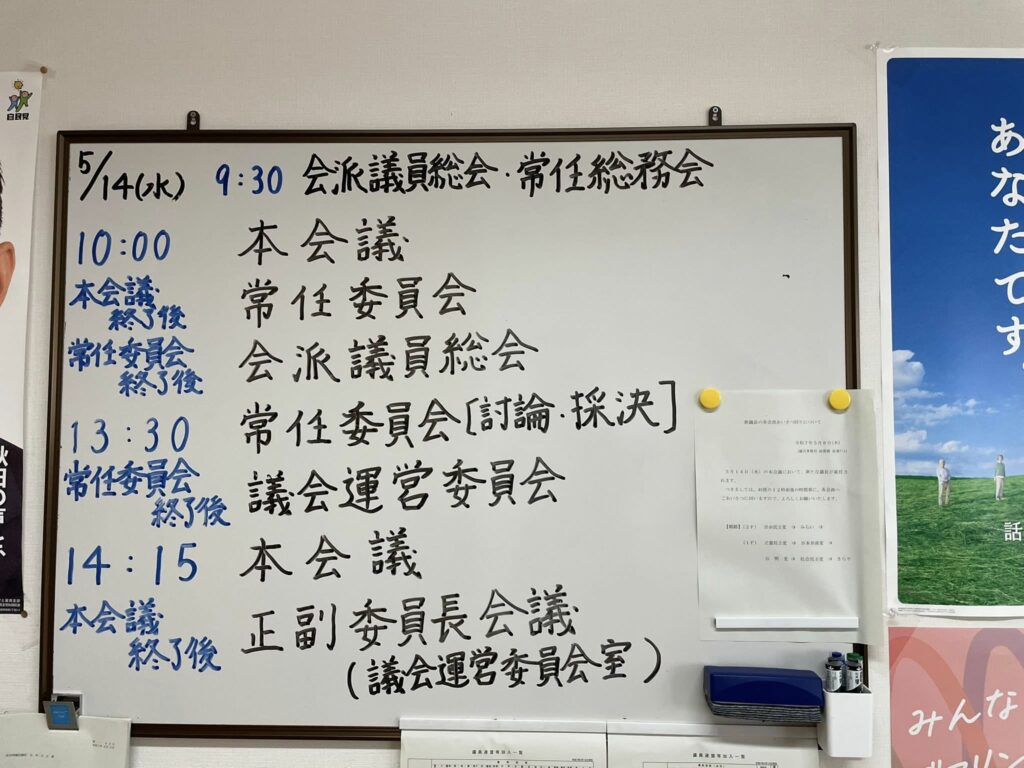 自民党
5/14(水) 9:30 会派議員総会・常任総務会
10:00 本会議
本会議終了後 常任委員会
常任委員会終了後 会派議員総会
13:30 常任委員会[討論・採決]
常任委員会終了後 議会運営委員会
14:15 本会議
本会議終了後 正副委員長会議
(議会運営委員会室)
令和7年5月8日(木)
あなたです。
話
みんな